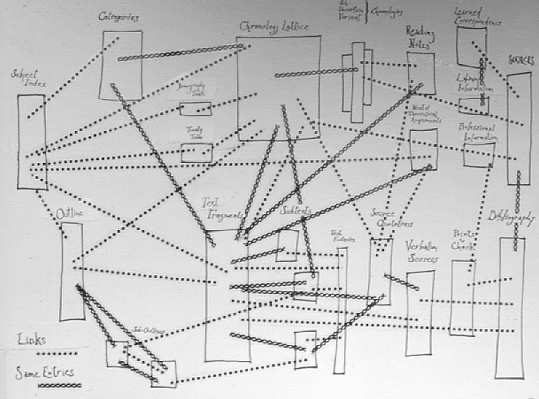 Categories
Chronology Lattice
Chronologies
Reading
Notes
Learned
Correspondence
SOURCES
Subject
Index
Information
Professional
Information
Family
Outline
Text
Fragments
Subtexts
Source
Quotations
Verbatim
Sources
Points
Check
Bibliography
Sub-Outlines
Links
Same Entries